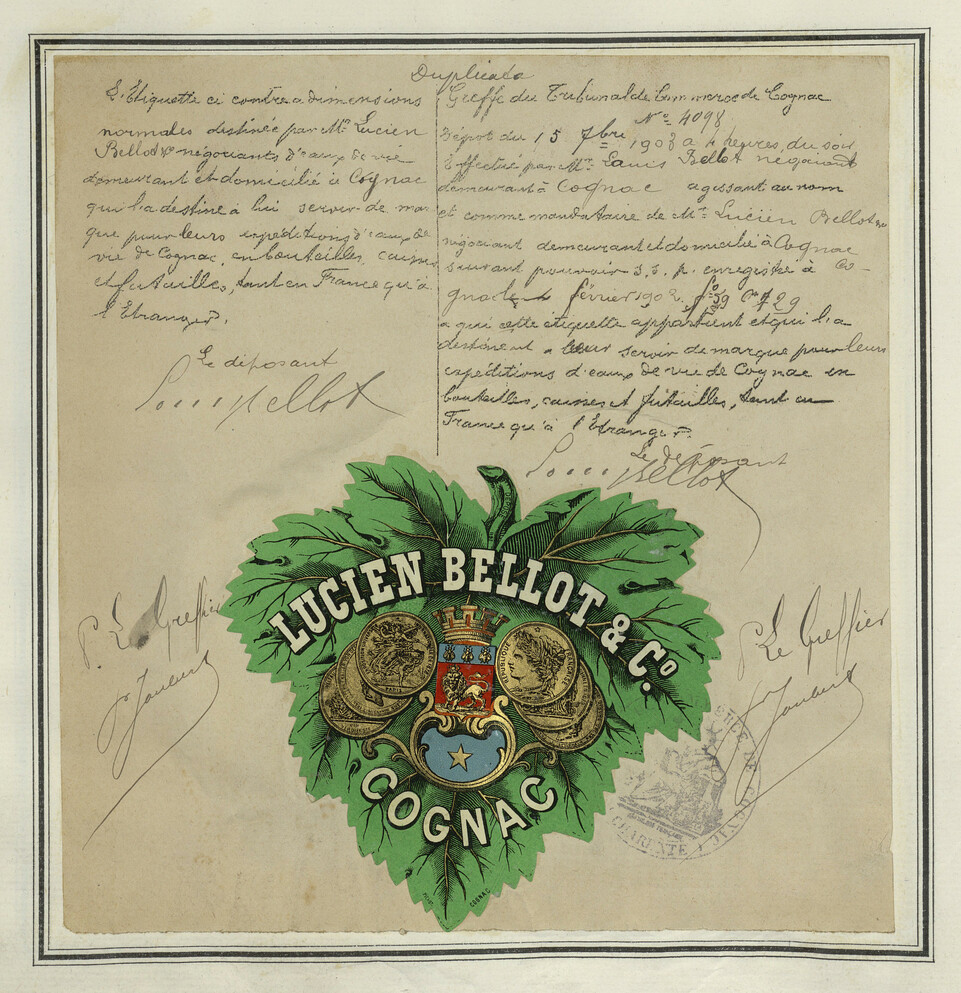 Duplicata
L'Etiquette ci contre a dimensions
normales destinée par Mr Lucien
Bellot & Co négociants d'eaux de vie
demeurant et domicilié à Cognac
qui l'a destine à lui servir de mar
que pour leurs expéditions d'eaux de
vie de Cognac, en bouteilles, caisses
et futailles, tant en France qu'à
l'Etranger.
Le déposant
Louis Bellot
Greffe du Tribunal de Commerce de Cognac
No 4098
Dépôt du 15 7bre 1903 à 4 heures du soir
Effectué par Mr Louis Bellot négociant
demeurant à Cognac agissant au nom
et comme mandataire de Mr Lucien Bellot & Co
négociant demeurant et domicilié à Cognac
suivant pouvoir s.s.p. enregistré à Co-
gnac le février 1902 fo 59 Ce 729
a qui cette étiquette appartient et qui l'a
destinent a leur servir de marque pour leurs
expéditions d'eaux de vie de Cognac en
bouteilles, caisses et futailles, tant en
France qu'à l'Etranger.
Le déposant
Louis Bellot
LUCIEN BELLOT & Co.
RÉPUBLIQUE FRANÇAISE
PARIS
COGNAC
COGNAC
P. Le Greffier
P. Le Greffier
DE COGNAC
CHARENTE